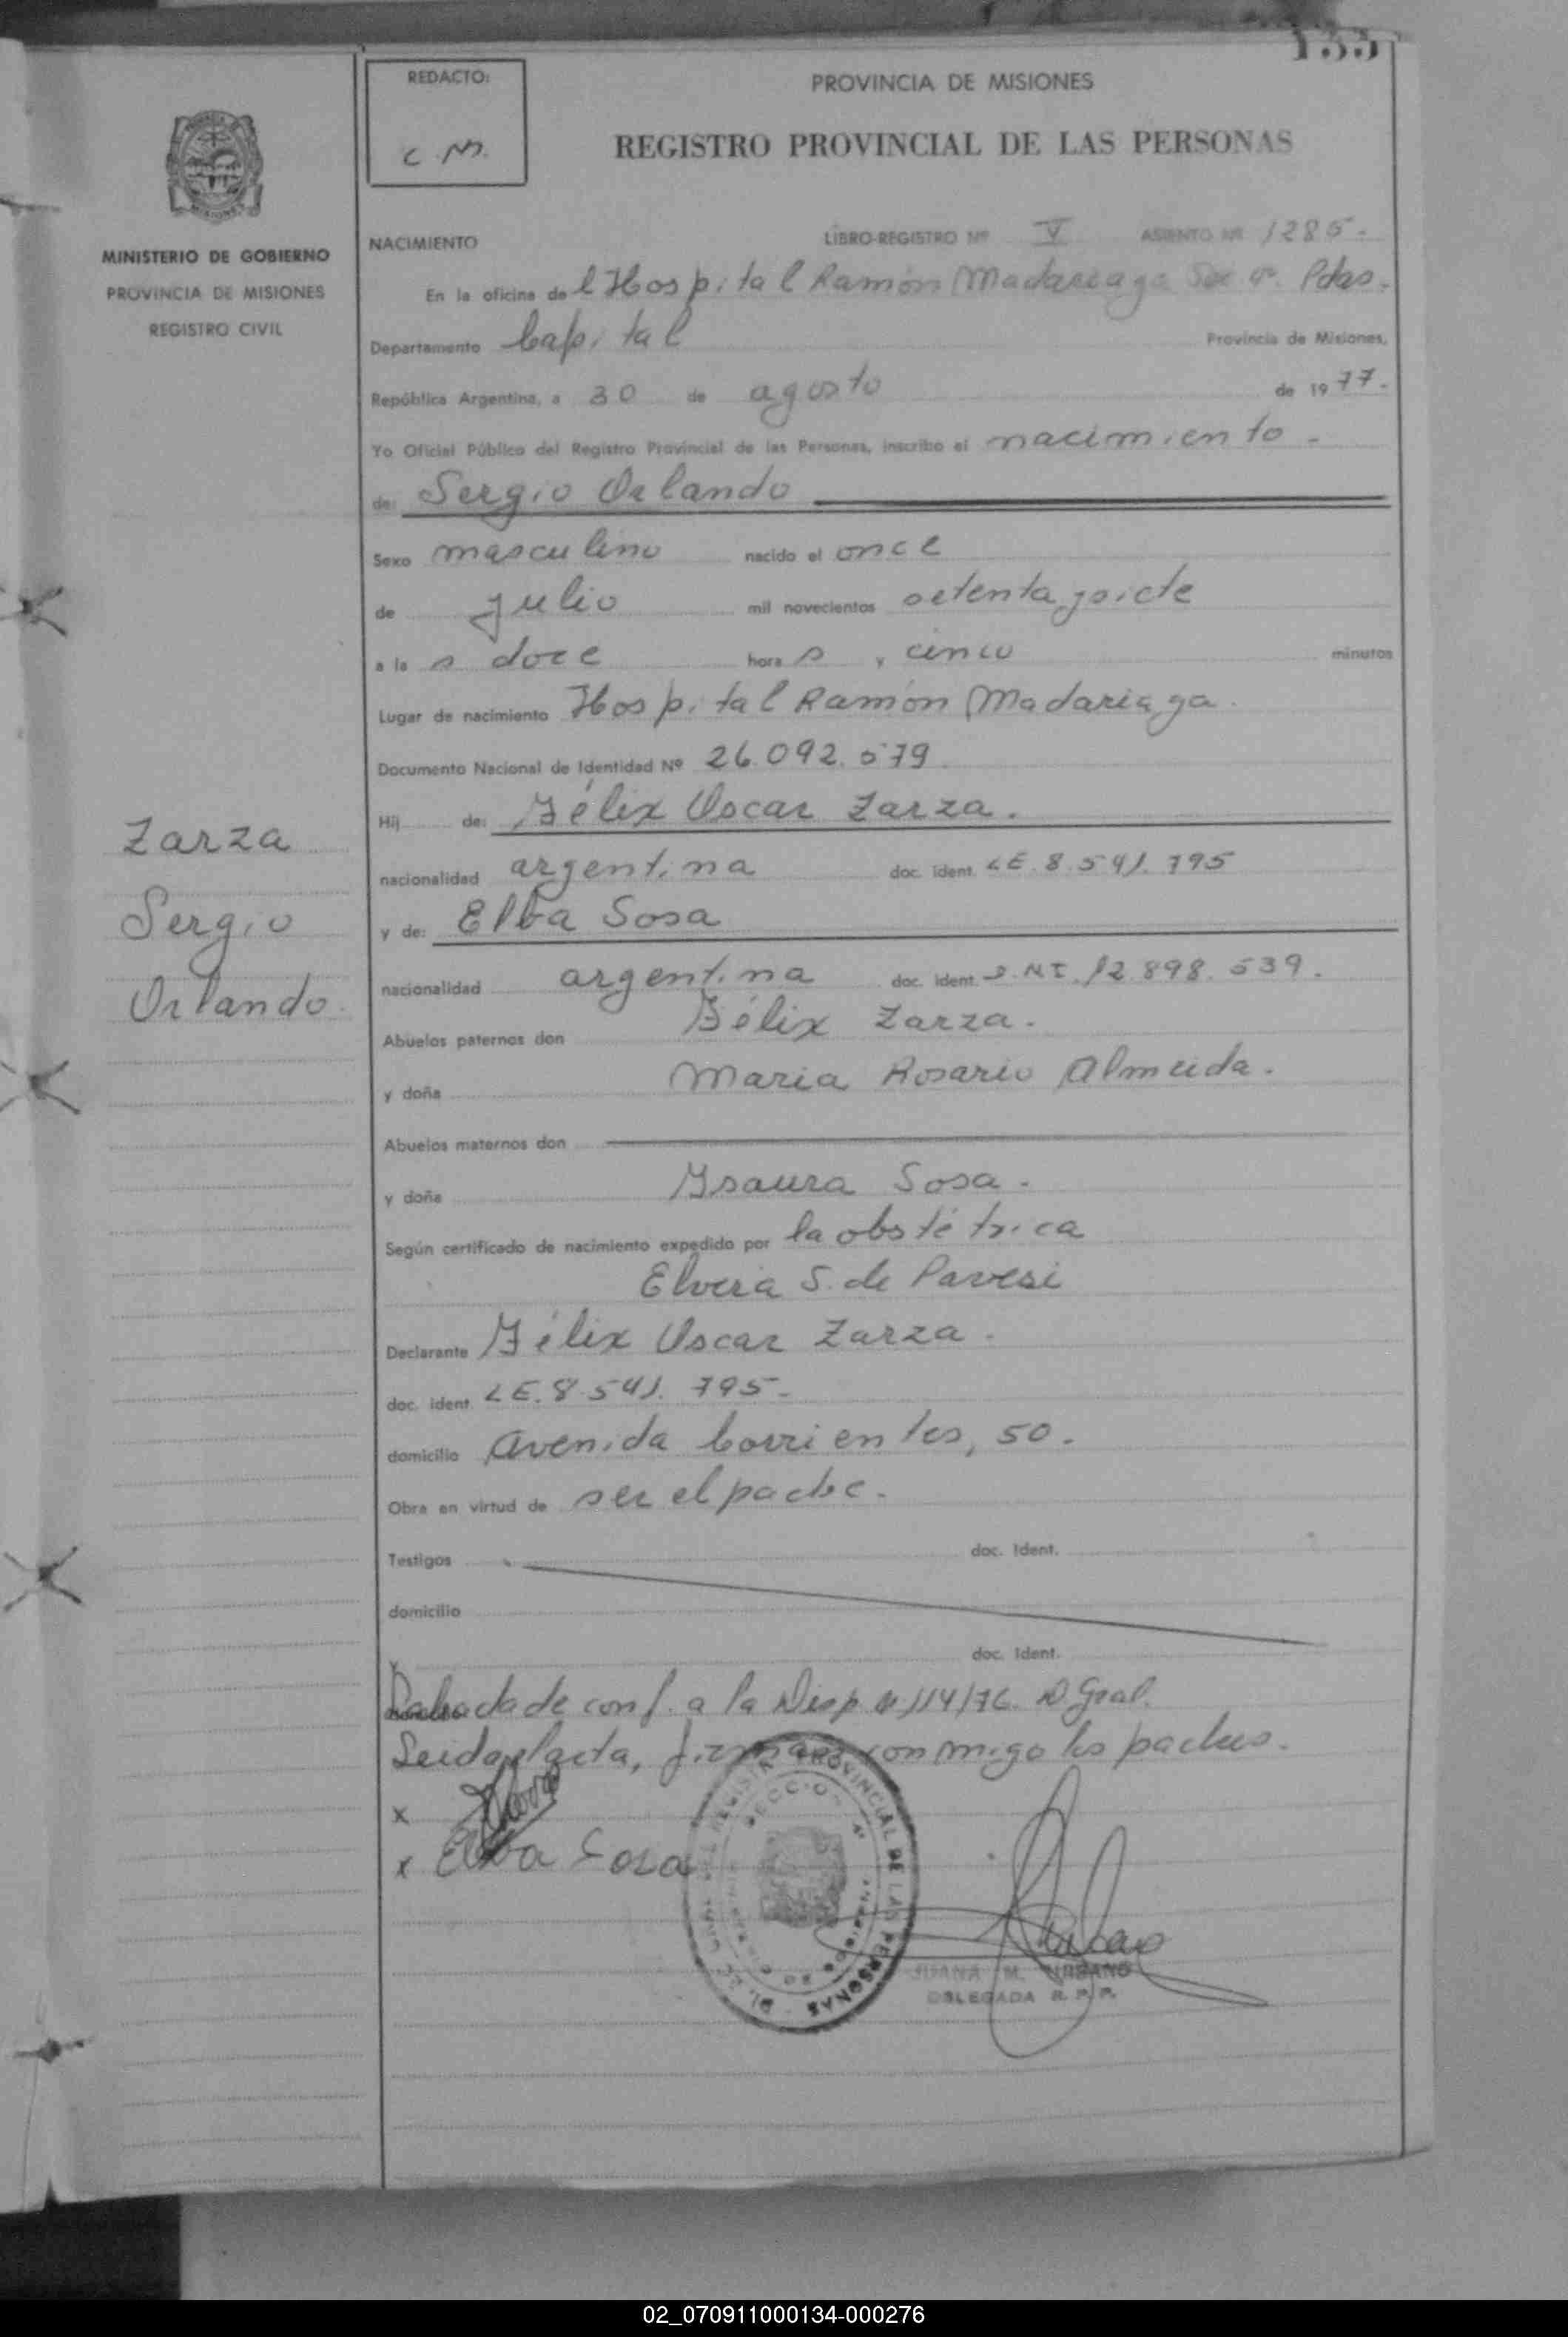 135
REDACTO:
C.M.
PROVINCIA DE MISIONES
REGISTRO PROVINCIAL DE LAS PERSONAS
MISIONES
MINISTERIO DE GOBIERNO
PROVINCIA DE MISIONES
REGISTRO CIVIL
NACIMIENTO LIBRO-REGISTRO Nº V ASIENTO Nº 1285.
En la oficina de l Hospital Ramón Madariaga Sec. 4ª. Pdas.
Departamento Capital Provincia de Misiones,
República Argentina, a 30 de agosto de 1977.
Yo Oficial Público del Registro Provincial de las Personas, inscribo el nacimiento.
de: Sergio Orlando
Sexo masculino nacido el once
de julio mil novecientos setenta y siete
a la s doce hora s y cinco minutos
Lugar de nacimiento Hospital Ramón Madariaga.
Documento Nacional de Identidad Nº 26.092.579.
Hij de: Félix Oscar Zarza.
nacionalidad argentina doc. ident. LE. 8.541.795
y de: Elba Sosa
nacionalidad argentina doc. ident. D.N.I. 12.898.539.
Abuelos paternos don Félix Zarza.
y doña Maria Rosario Almeida.
Abuelos maternos don
y doña Ysaura Sosa.
Según certificado de nacimiento expedido por la obstétrica
Elvira S. de Pavesi
Declarante Félix Oscar Zarza.
doc. ident. LE. 8.541.795.
domicilio Avenida Corrientes, 50.
Obra en virtud de ser el padre.
Testigos doc. ident.
domicilio
y doc. ident.
de conf. a la Disp. nº 114/76. D. Gral.
Leida el acta, firman conmigo los padres.
x
x Elba Sosa
REGISTRO PROVINCIAL DE LAS PERSONAS
SECCION 4ª
JUANA M. URBANO
DELEGADA R. P. P.
Zarza
Sergio
Orlando.
02_070911000134-000276